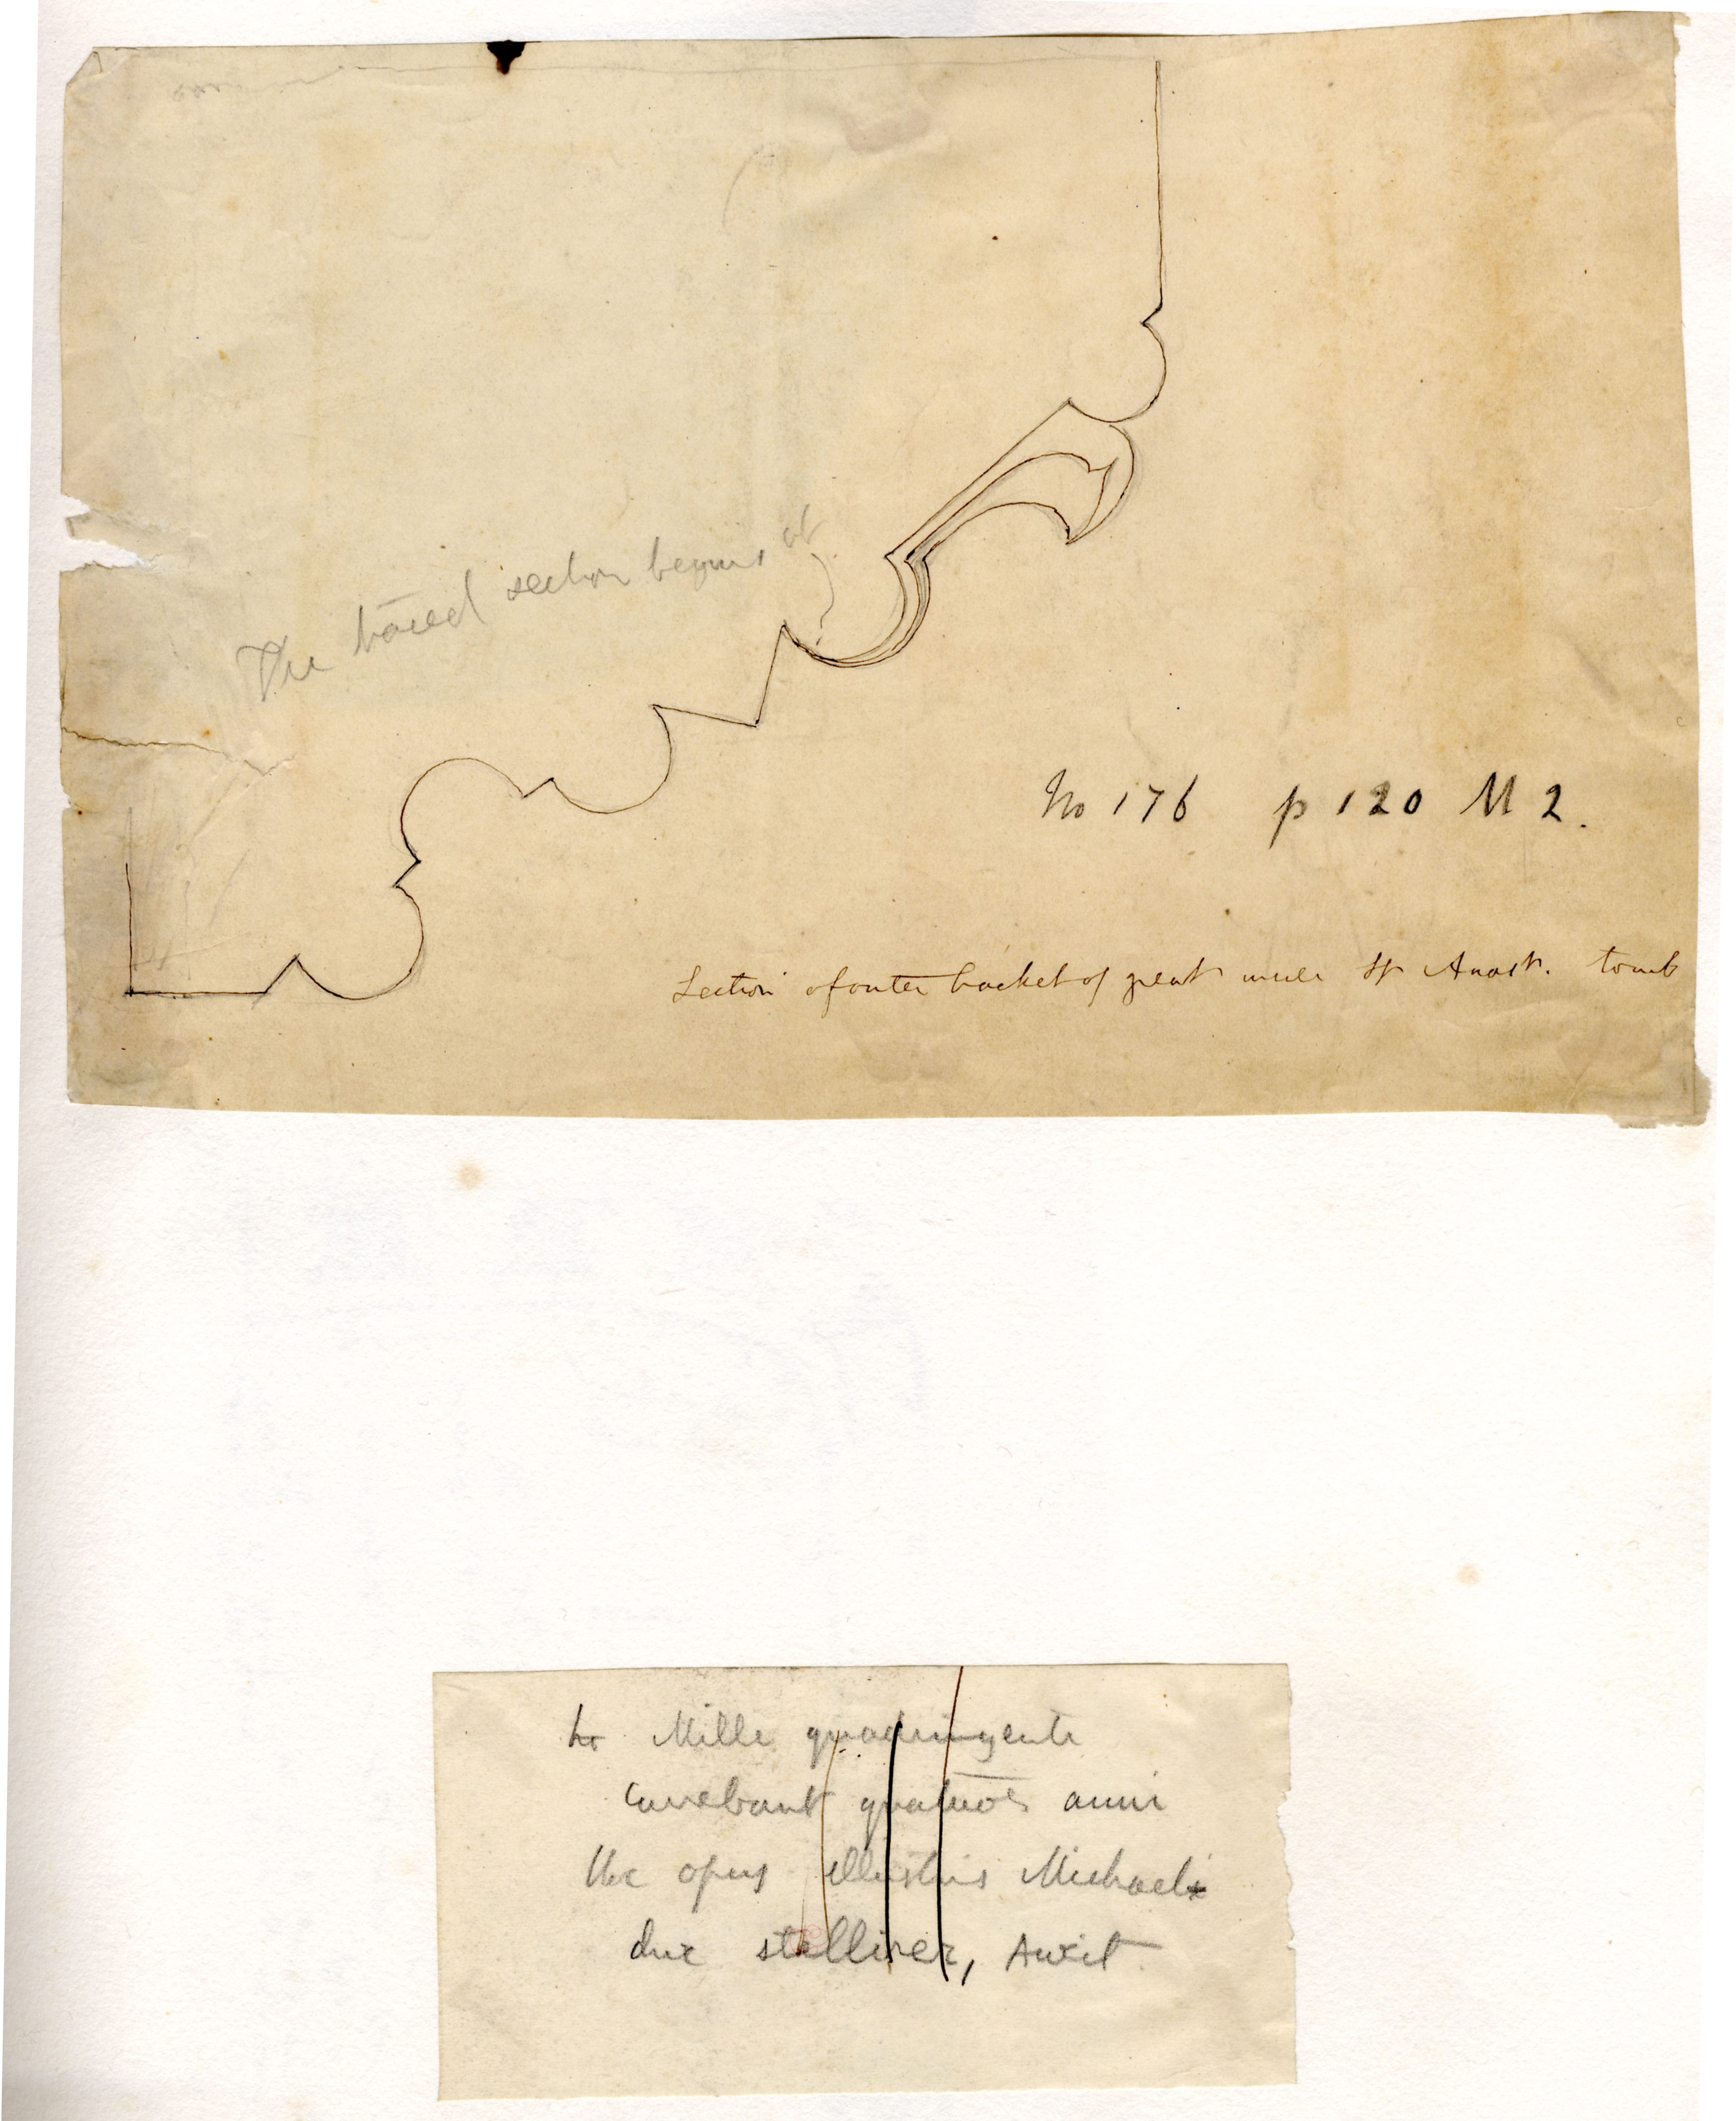 The traced section begins at
No 176 p 120 M 2.
Section of outer bracket of great St Anast. tomb
Mille quadringente
currebant quatuor anni
Hoc opus illustris Michael
dux stellifer, Auxit